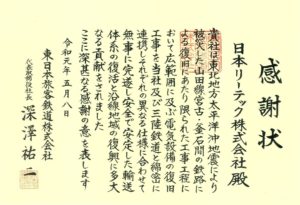 感謝状
日本リーテック株式会社 殿
貴社は東北地方太平洋沖地震により
被災した山田線宮古・釜石間の鉄路に
よる復旧にあたり限られた工事工程に
おいて広範囲に及ぶ電気設備の復旧
工事を当社及び三陸鉄道と綿密に
連携しそれぞれの異なる仕様に合わせて
無事に完遂し安全で安定した輸送
体系の復活と沿線地域の復興に多大
なる貢献をされました
ここに深甚なる感謝の意を表します
令和元年五月八日
東日本旅客鉄道株式会社
代表取締役社長 深澤祐二